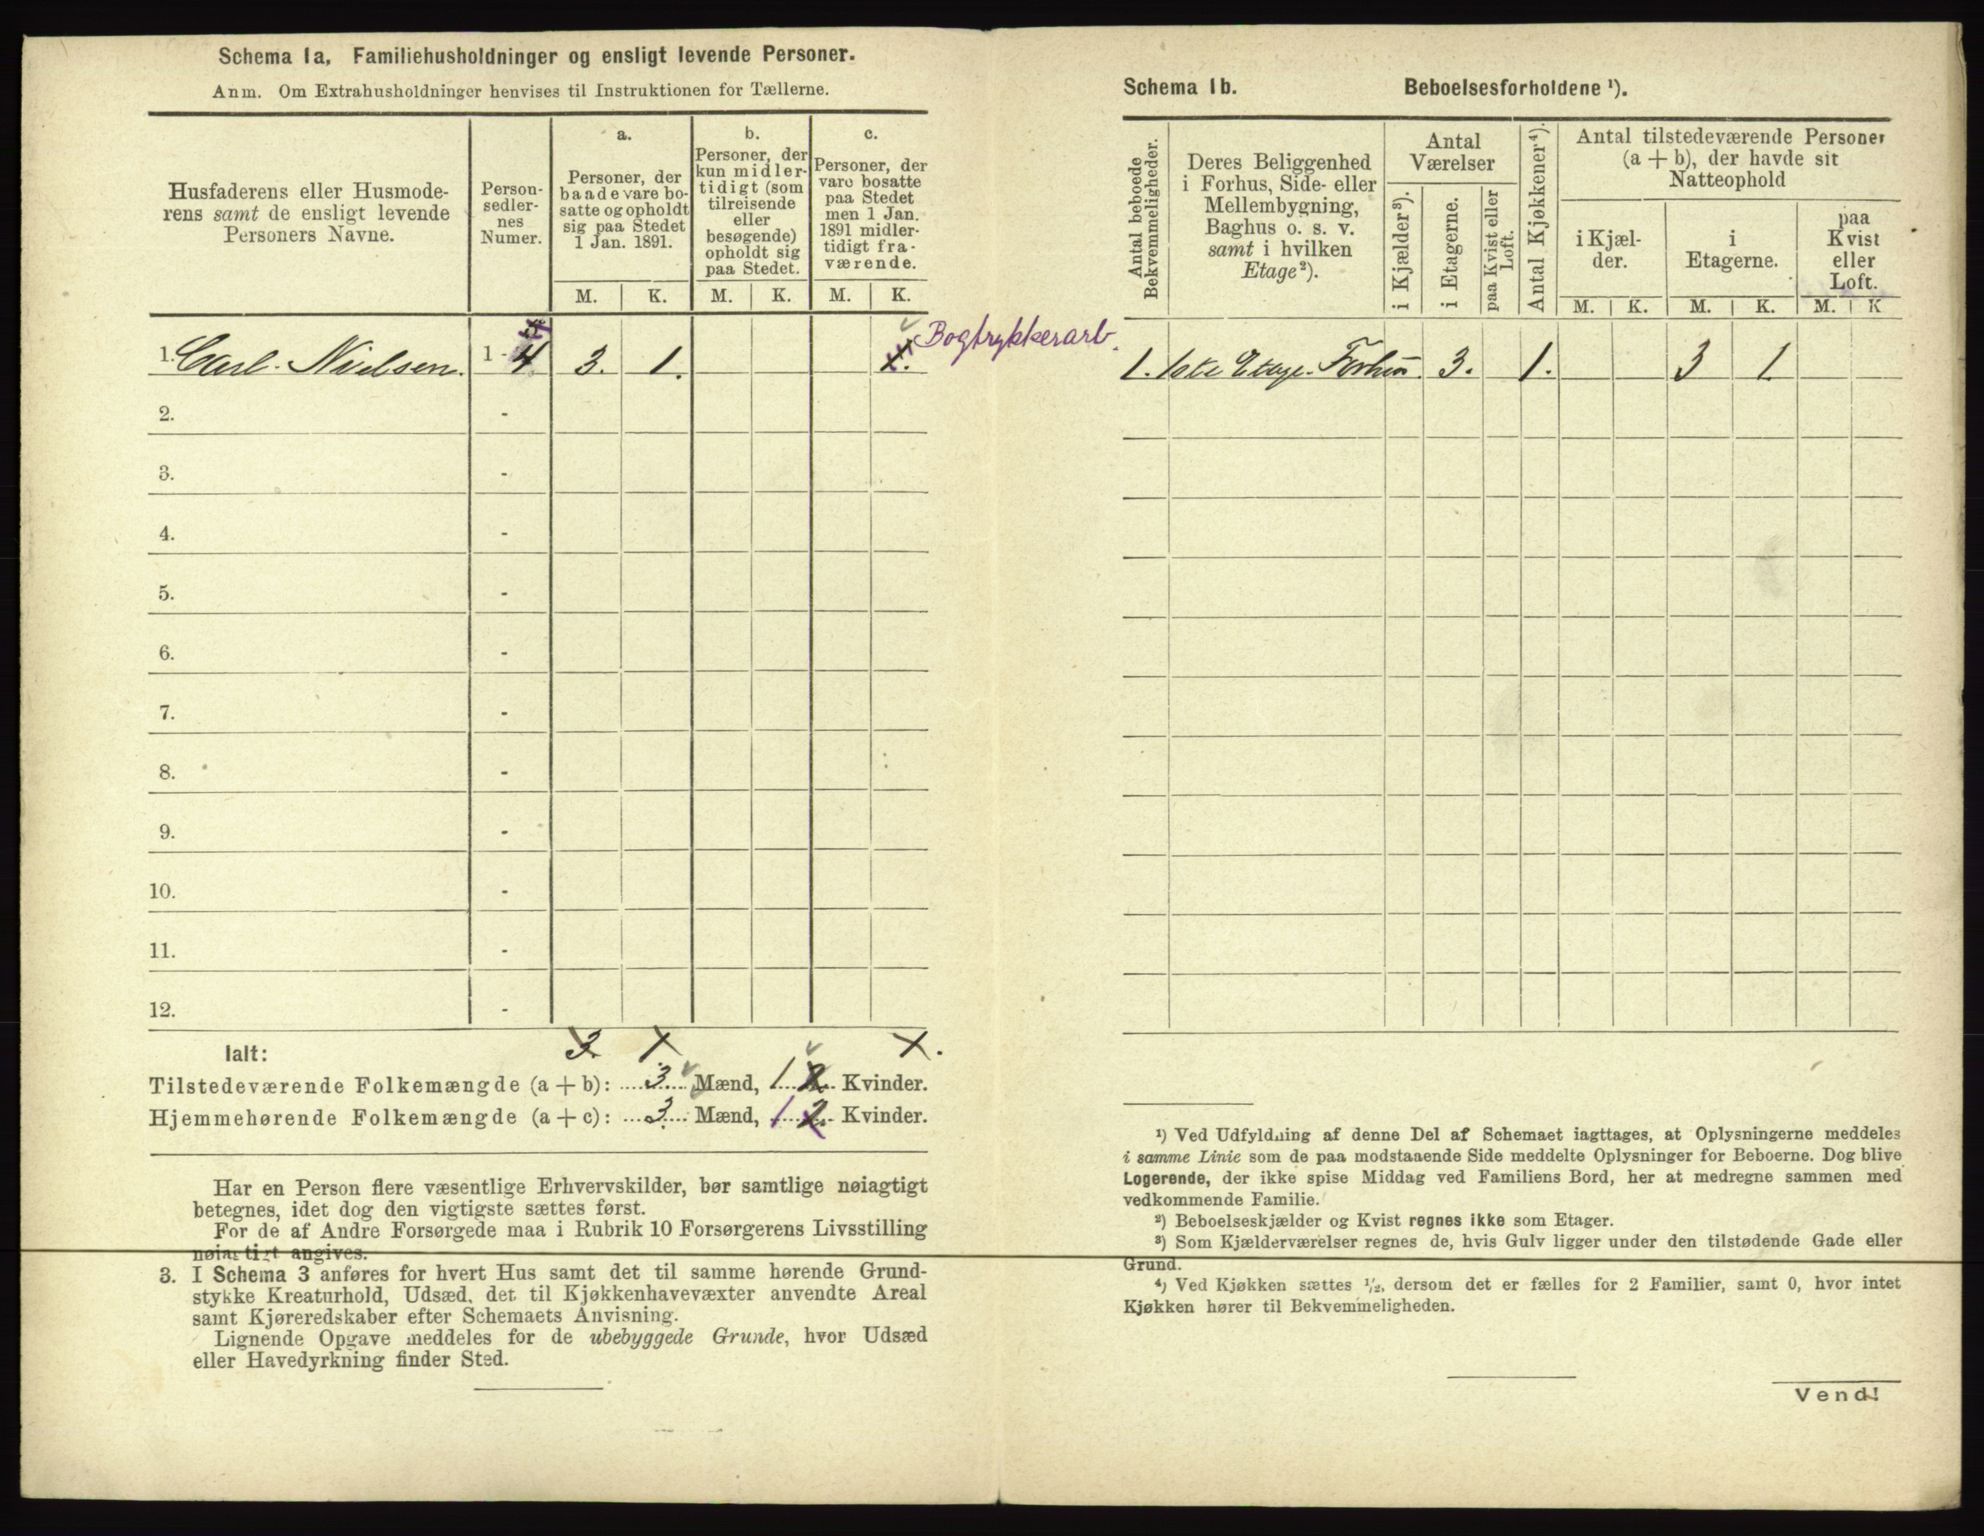 Schema 1a, Familiehusholdninger og ensligt levende Personer.
Anm. Om Extrahusholdninger henvises til Instruktionen for Tællerne.
Husfaderens eller Husmode-
rens samt de ensligt levende
Personers Navne.
Person-
sedler-
nes
Numer.
a.
Personer, der
baade vare bo-
satte og opholdt
sig paa Stedet
1 Jan. 1891.
b.
Personer, der
kun midler-
tidigt (som
tilreisende
eller
besøgende)
opholdt sig
paa Stedet.
c.
Personer, der
vare bosatte
paa Stedet
men 1 Jan.
1891 midler-
tidigt fra-
værende.
M. K. M. K. M. K.
1. Carl. Nielsen. 1 - 4 3. 1. 1. Bogtrykkerarb.
2. -
3. -
4. -
5. -
6. -
7. -
8. -
9. -
10. -
11. -
12. -
Ialt: 3. 1 1.
Tilstedeværende Folkemængde (a + b): 3. Mænd, 1 2. Kvinder.
Hjemmehørende Folkemængde (a + c): 3. Mænd, 1 2. Kvinder.
Har en Person flere væsentlige Erhvervskilder, bør samtlige nøiagtigt
betegnes, idet dog den vigtigste sættes først.
For de af Andre Forsørgede maa i Rubrik 10 Forsørgerens Livsstilling
nøiagtigt angives.
3. I Schema 3 anføres for hvert Hus samt det til samme hørende Grund-
stykke Kreaturhold, Udsæd, det til Kjøkkenhavevæxter anvendte Areal
samt Kjøreredskaber efter Schemaets Anvisning.
Lignende Opgave meddeles for de ubebyggede Grunde, hvor Udsæd
eller Havedyrkning finder Sted.
Schema 1b. Beboelsesforholdene ¹).
Antal beboede
Bekvemmeligheder.
Deres Beliggenhed
i Forhus, Side- eller
Mellembygning,
Baghus o. s. v.
samt i hvilken
Etage ²).
Antal
Værelser
i Kjælder ³).
i Etagerne.
paa Kvist eller
Loft.
Antal Kjøkkener ⁴).
Antal tilstedeværende Personer
(a + b), der havde sit
Natteophold
i Kjæl-
der.
i
Etagerne.
paa
Kvist
eller
Loft.
M. K. M. K. M. K
1. 1ste Etage. Forhus 3. 1. 3 1.
¹) Ved Udfyldning af denne Del af Schemaet iagttages, at Oplysningerne meddeles
i samme Linie som de paa modstaaende Side meddelte Oplysninger for Beboerne. Dog blive
Logerende, der ikke spise Middag ved Familiens Bord, her at medregne sammen med
vedkommende Familie.
²) Beboelseskjælder og Kvist regnes ikke som Etager.
³) Som Kjælderværelser regnes de, hvis Gulv ligger under den tilstødende Gade eller
Grund.
⁴) Ved Kjøkken sættes ¹/₂, dersom det er fælles for 2 Familier, samt 0, hvor intet
Kjøkken hører til Bekvemmeligheden.
Vend!